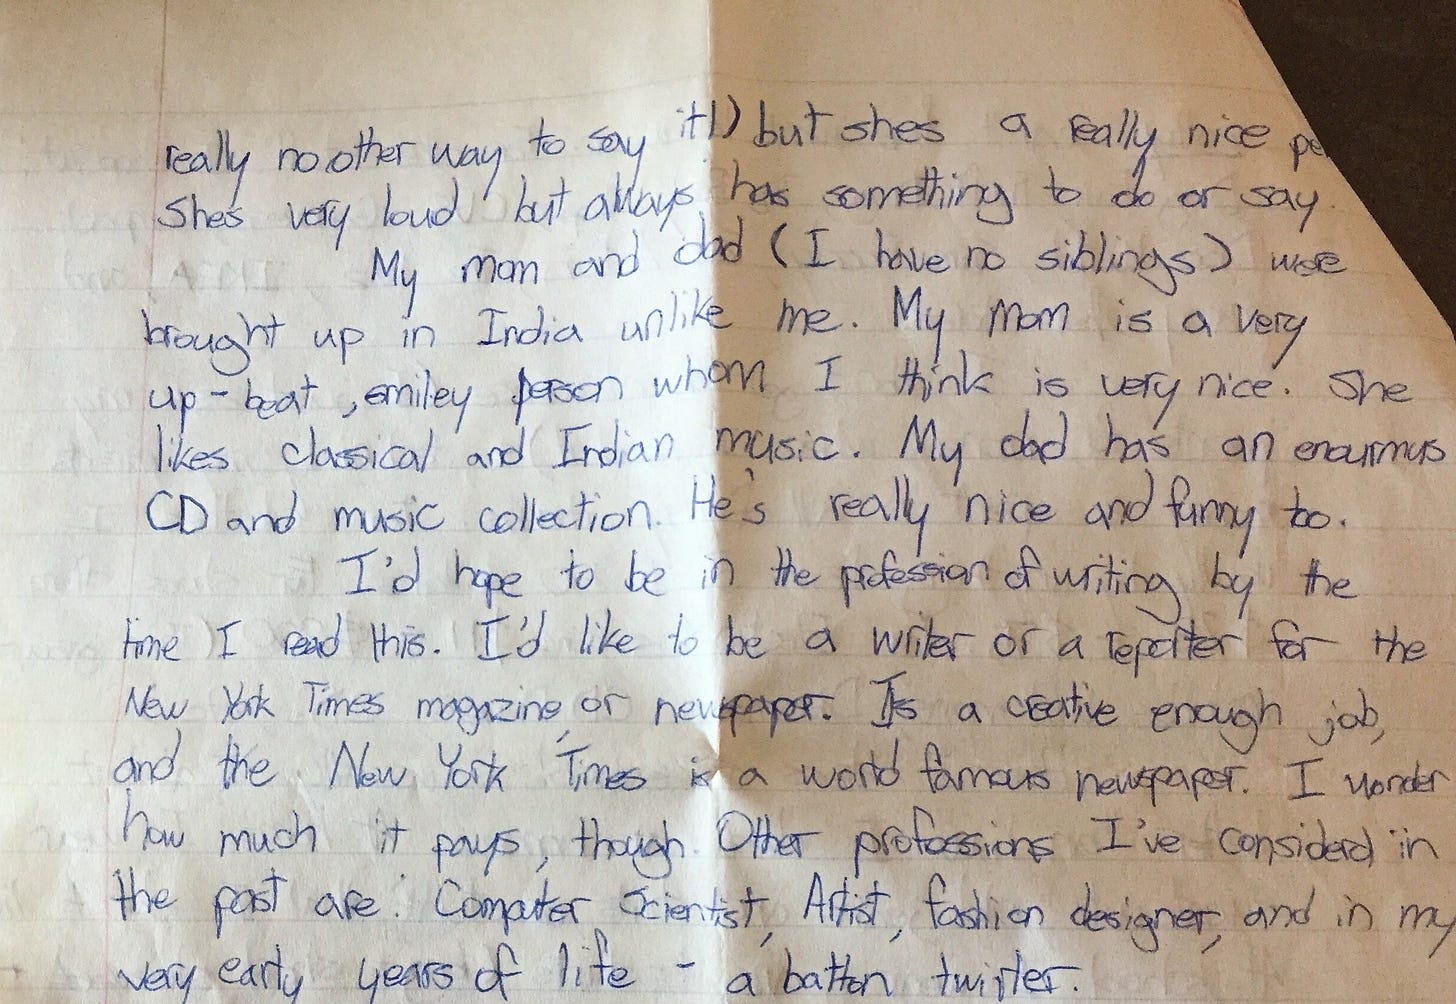 really no other way to say it!) but shes a really nice pe
She's very loud but always has something to do or say.
My mom and dad (I have no siblings) were
brought up in India unlike me. My mom is a very
up-beat, smiley person whom I think is very nice. She
likes classical and Indian music. My dad has an enourmus
CD and music collection. He's really nice and funny to.
I'd hope to be in the profession of writing by the
time I read this. I'd like to be a writer or a reporter for the
New York Times magazine, or newspaper. It's a creative enough job,
and the New York Times is a world famous newspaper. I wonder
how much it pays, though. Other professions I've considerd in
the past are: Computer Scientist, Artist, fashion designer, and in my
very early years of life - a batton twirler.